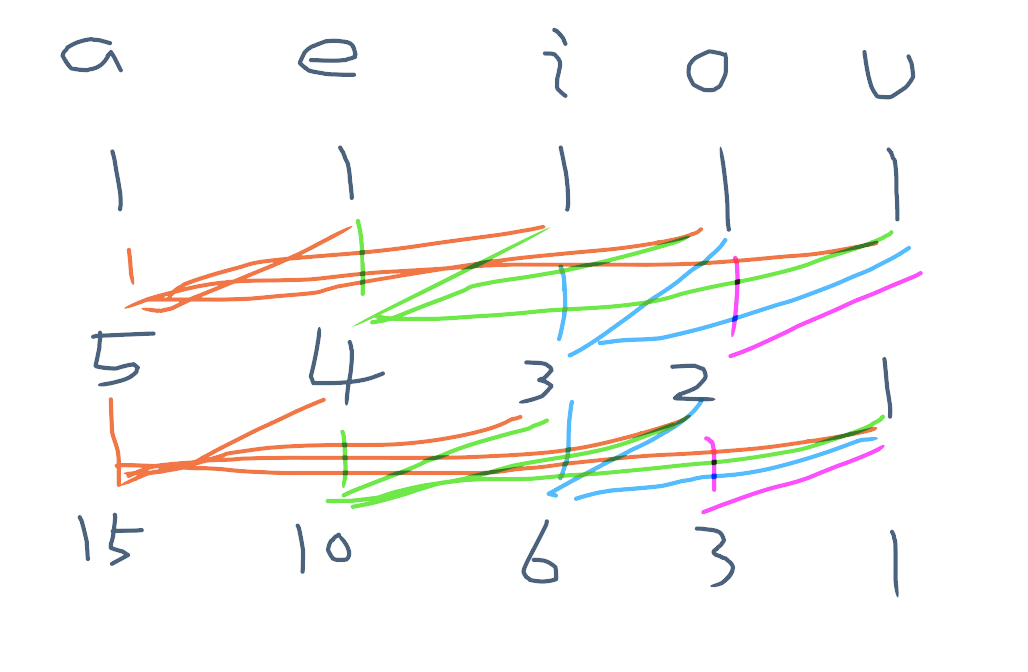 a e i o u
1 1 1 1 1
5 4 3 2 1
15 10 6 3 1